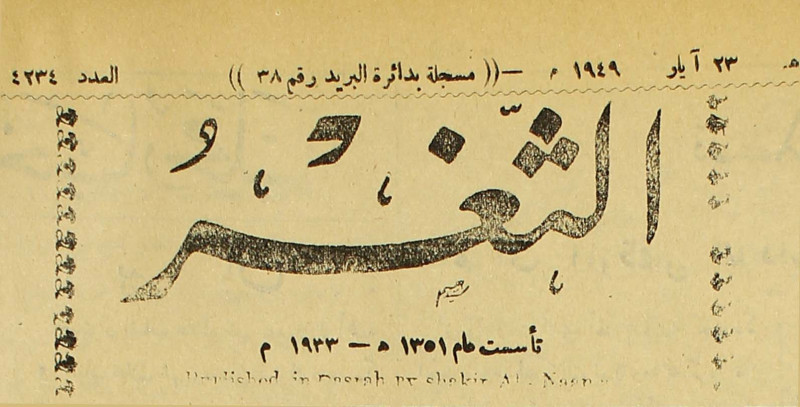 ٢٣ آيار ١٩٤٩ م — (( مسجلة بدائرة البريد رقم ٣٨ )) العدد ٤٢٣٤
الثَّغْرُ
تأسست عام ١٣٥١ ه — ١٩٣٣ م
Published in Basrah by shakir Al-